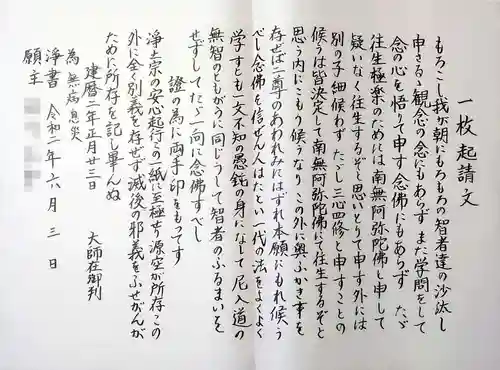 一枚起請文
もろこし我が朝にもろもろの智者達の沙汰し
申さるゝ観念の念にもあらず また学問をして
念の心を悟りて申す念佛にもあらず たゞ
往生極楽のためには南無阿弥陀佛と申して
疑いなく往生するぞと思いとりて申す外には
別の子細候わず たゞし三心四修と申すことの
候うは皆決定して南無阿弥陀佛にて往生するぞと
思う内にこもり候うなり この外に奥ふかき事を
存ぜば二尊のあわれみにはずれ本願にもれ候う
べし 念佛を信ぜん人はたとい一代の法をよくよく
学すとも一文不知の愚鈍の身になして尼入道の
無智のともがらに同じうして智者のふるまいを
せずしてたゞ一向に念佛すべし
證の為に両手印をもってす
浄土宗の安心起行この一紙に至極せり 源空が所存この
外に全く別義を存ぜず滅後の邪義をふせがんが
ために所存を記し畢んぬ
建暦二年正月廿三日 大師在御判
為 無病息災
浄書 令和二年 六月 三日
願主